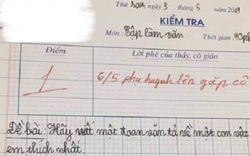 Thứ năm ngày 3 tháng 5 năm 2019
KIỂM TRA
Môn: Tập làm văn Thời gian: 40 phút
Điểm
Lời phê của thầy, cô giáo
1
6/5 phụ huynh lên gặp cô
Đề bài: Hãy viết một đoạn văn tả về một con vật
em thích nhất.